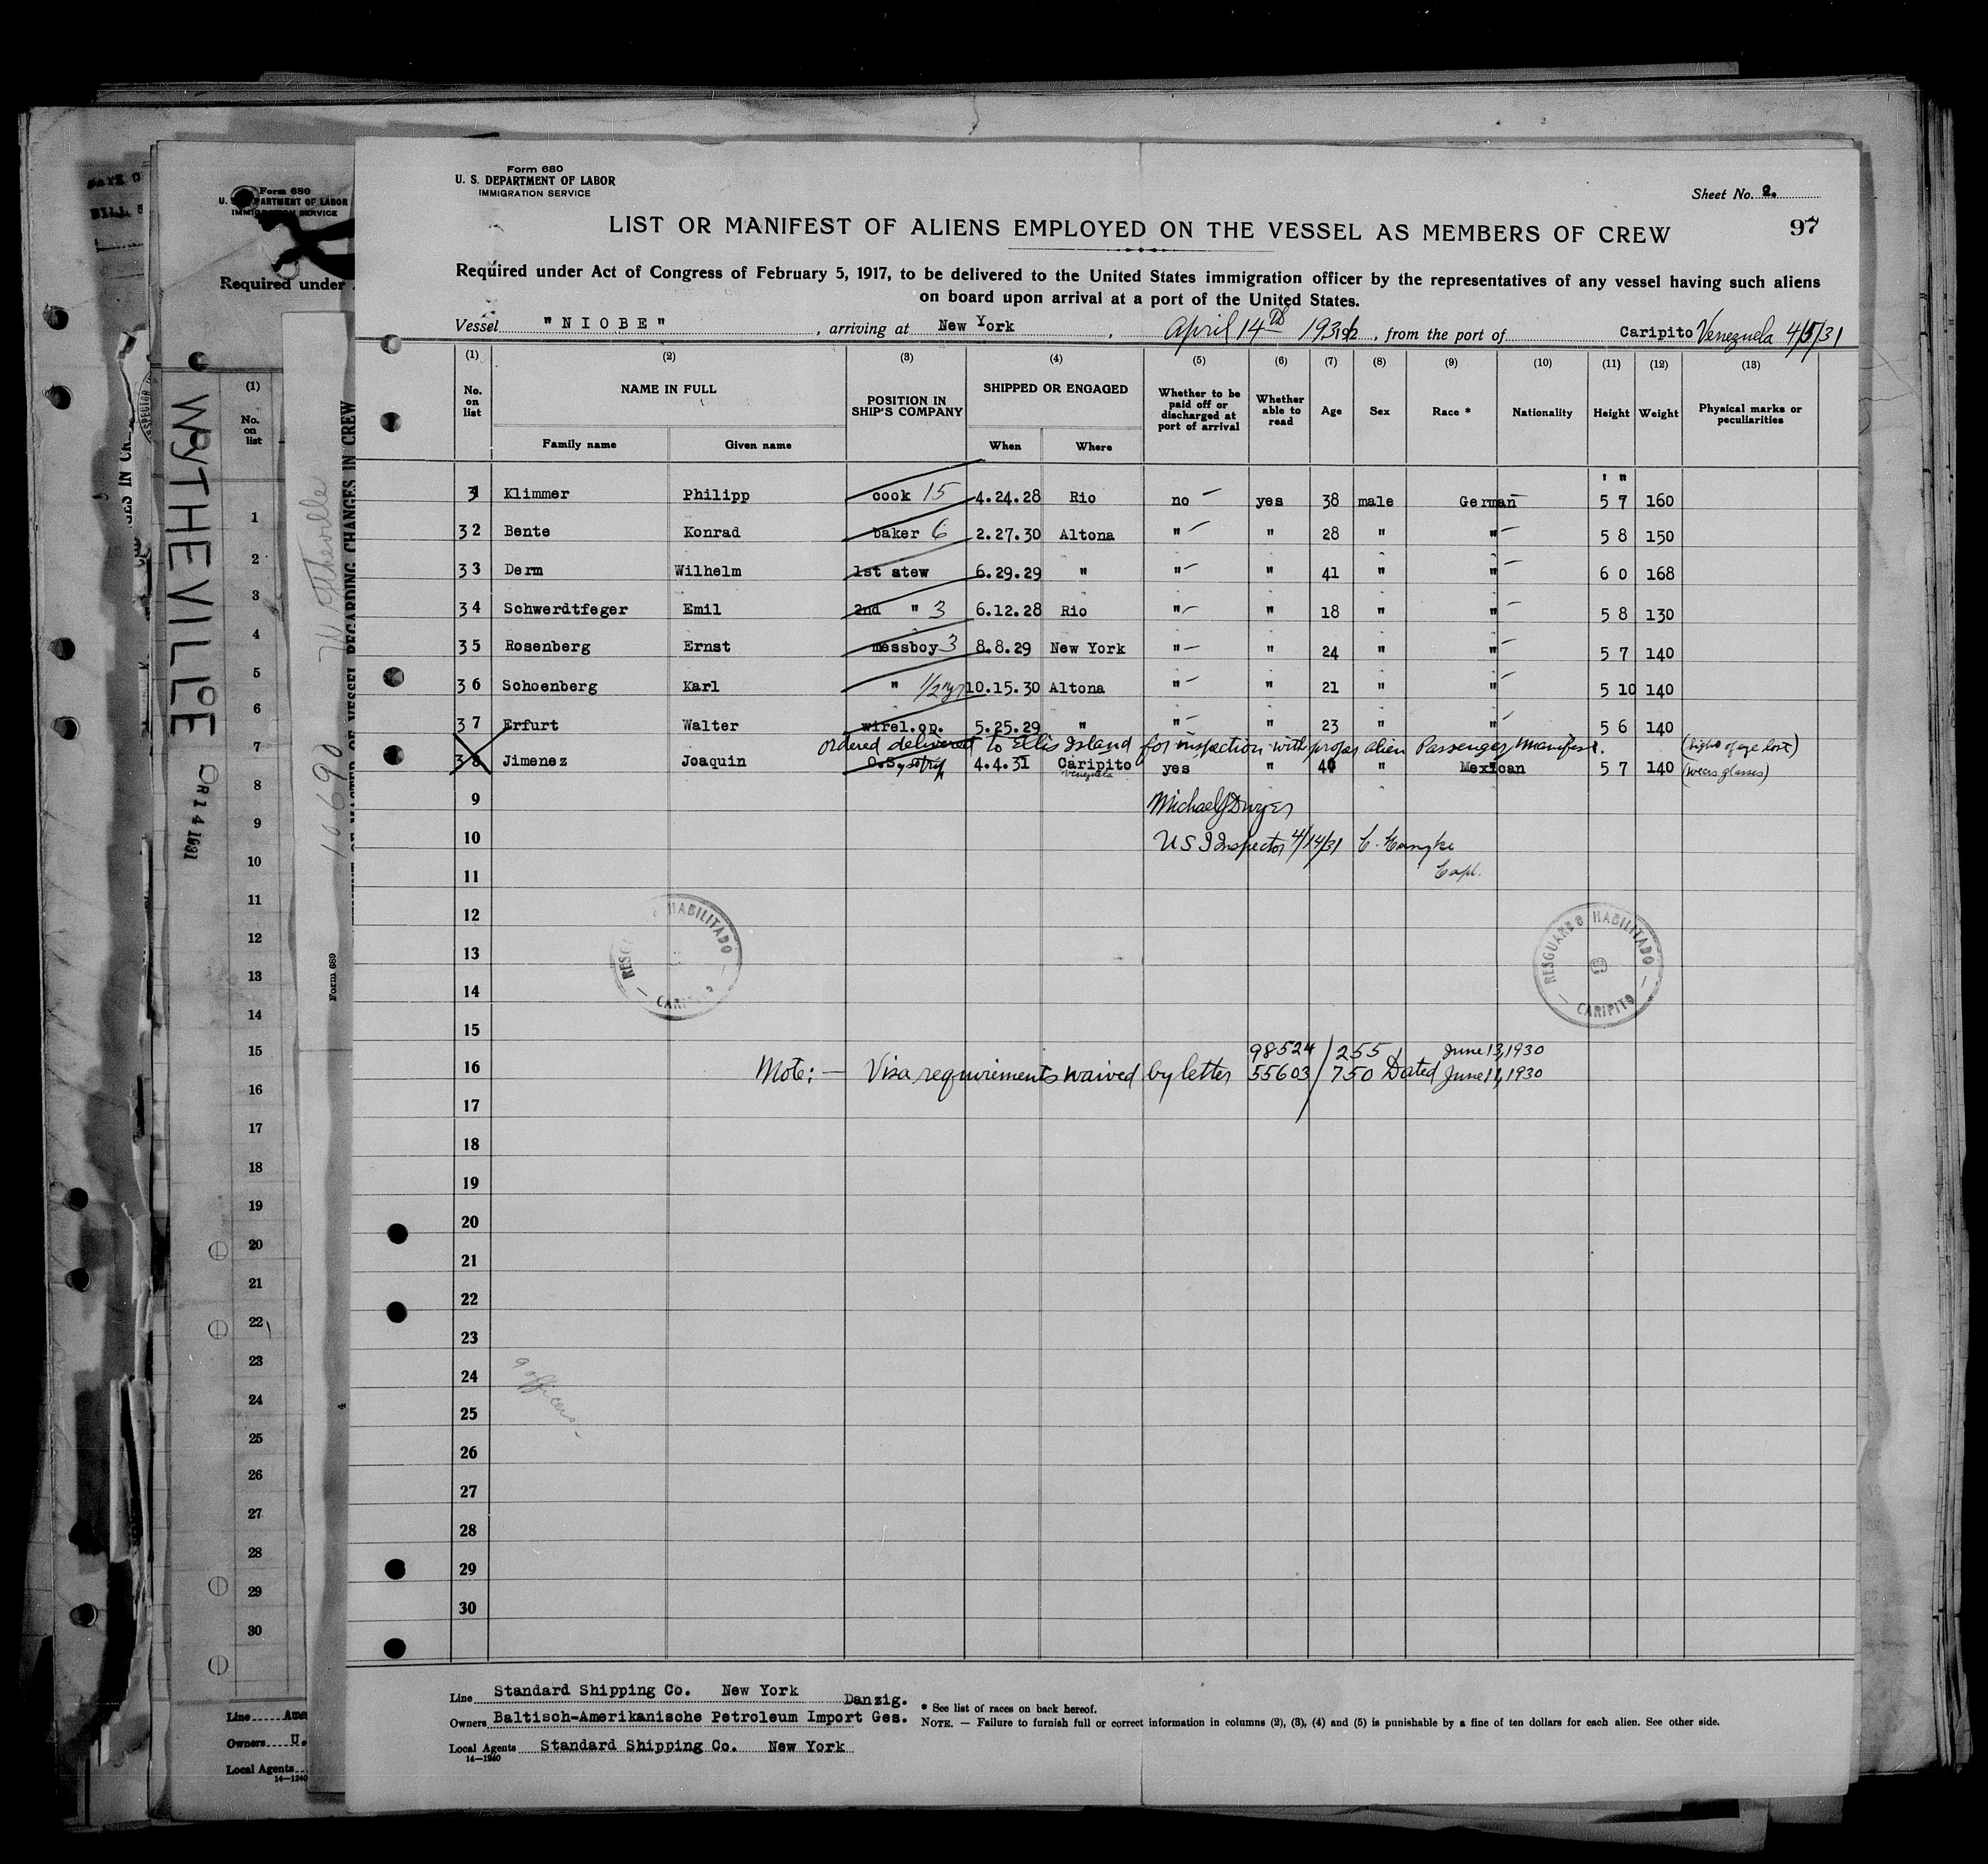 Form 680
U. S. DEPARTMENT OF LABOR
IMMIGRATION SERVICE
Sheet No. 2.
97
LIST OR MANIFEST OF ALIENS EMPLOYED ON THE VESSEL AS MEMBERS OF CREW
Required under Act of Congress of February 5, 1917, to be delivered to the United States immigration officer by the representatives of any vessel having such aliens
on board upon arrival at a port of the United States.
Vessel "NIOBE", arriving at New York, April 14th 1931, from the port of Caripito Venezuela 4/5/31
(1) (2) (3) (4) (5) (6) (7) (8) (9) (10) (11) (12) (13)
No. on list NAME IN FULL POSITION IN SHIP'S COMPANY SHIPPED OR ENGAGED Whether to be paid off or discharged at port of arrival Whether able to read Age Sex Race * Nationality Height Weight Physical marks or peculiarities
Family name Given name When Where
31 Klimmer Philipp cook 15 4.24.28 Rio no yes 38 male German 5' 7" 160
32 Bente Konrad baker 6 2.27.30 Altona " " 28 " " 5 8 150
33 Derm Wilhelm 1st stew 6.29.29 " " " 41 " " 6 0 168
34 Schwerdtfeger Emil 2nd " 3 6.12.28 Rio " " 18 " " 5 8 130
35 Rosenberg Ernst messboy 3 8.8.29 New York " " 24 " " 5 7 140
36 Schoenberg Karl " 1/2 yr 10.15.30 Altona " " 21 " " 5 10 140
37 Erfurt Walter wirel.op. 5.25.29 " " " 23 " " 5 6 140
ordered delivered to Ellis Island for inspection with proper alien Passenger Manifest. (sight of eye lost)
38 Jimenez Joaquin O.S. 4.4.31 Caripito Venezuela yes " 40 " Mexican 5 7 140 (wears glasses)
9 Michael J Dwyer
10 U S I Inspector 4/14/31
11 Capt.
12
13
14
RESGUARDO HABILITADO
CARIPITO
RESGUARDO HABILITADO
CARIPITO
15
98524/255 June 13, 1930
16 Note: — Visa requirements waived by letter 55603/750 Dated June 11, 1930
17
18
19
20
21
22
23
24 9 officers
25
26
27
28
29
30
Line Standard Shipping Co. New York
Danzig.
Owners Baltisch-Amerikanische Petroleum Import Ges.
Local Agents Standard Shipping Co. New York
14—1240
* See list of races on back hereof.
NOTE. — Failure to furnish full or correct information in columns (2), (3), (4) and (5) is punishable by a fine of ten dollars for each alien. See other side.
Form 680
U. S. DEPARTMENT OF LABOR
IMMIGRATION SERVICE
Required under
WYTHEVILLE
(1)
No. on list
1
2
3
4
5
6
7
8
9
10
11
12
13
14
15
16
17
18
19
20
21
22
23
24
25
26
27
28
29
30
Line
Owners U.
Local Agents
14—1240
REGARDING CHANGES IN CREW
Form 689
10690